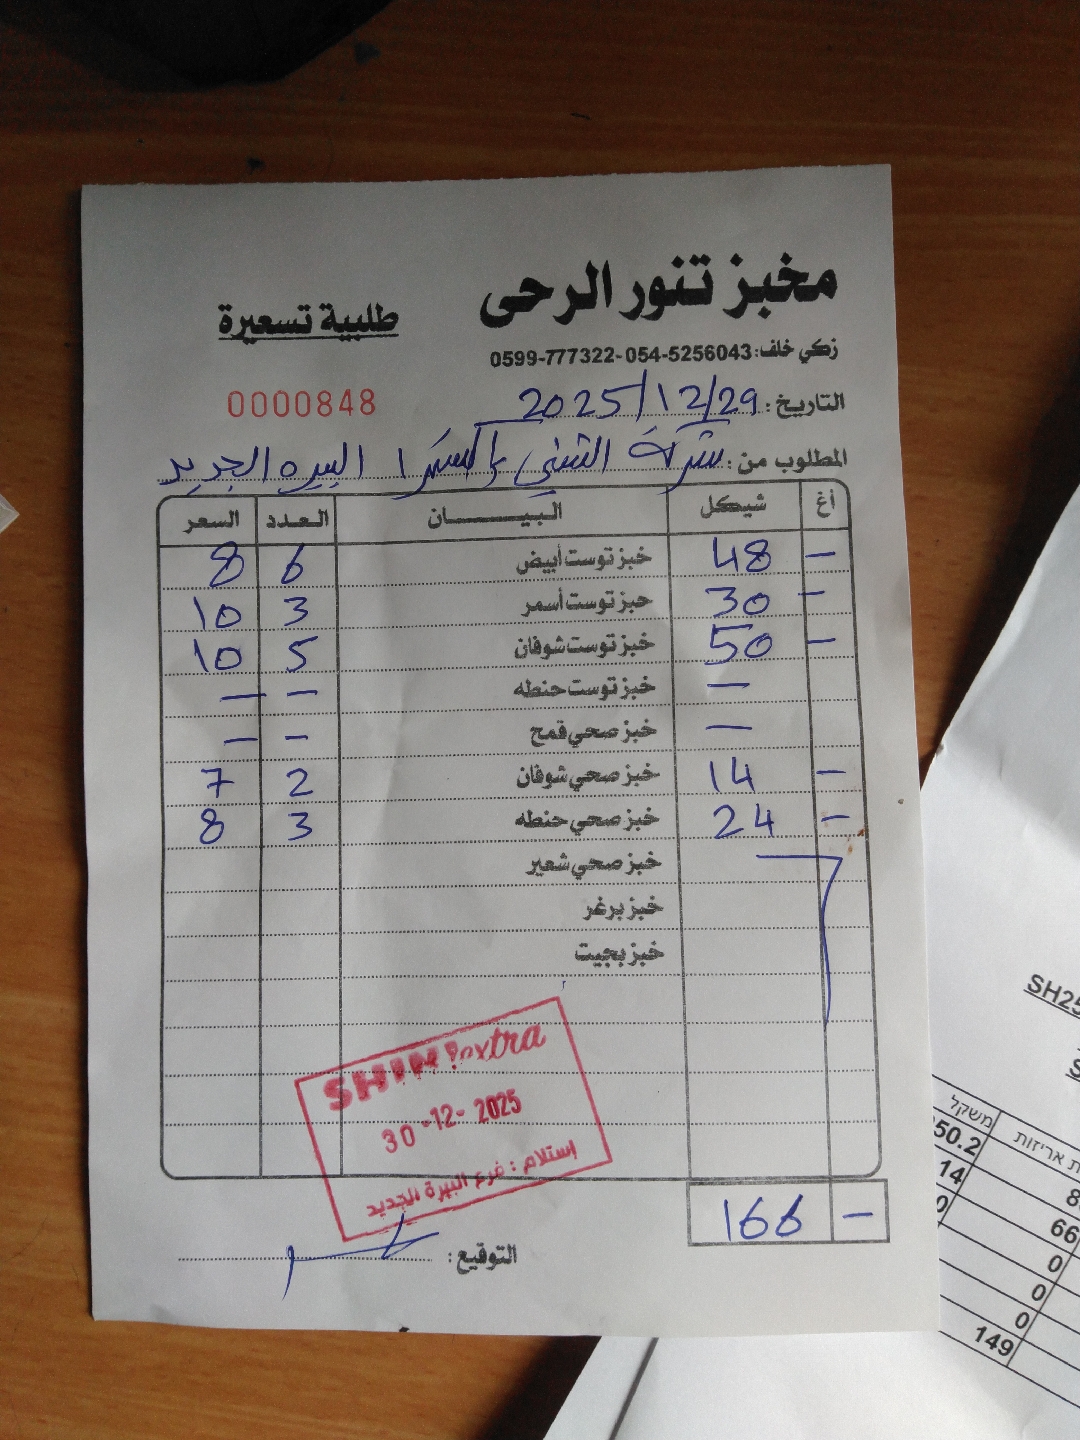 مخبز تنور الرحى
طلبية تسعيرة
زكي خلف: 054-5256043 - 0599-777322
0000848
التاريخ: 2025/12/29
المطلوب من: شركة الشني اكسترا البيره الجديد
أغ شيكل البيــــــان العدد السعر
— 48 خبز توست أبيض 6 8
— 30 خبز توست أسمر 3 10
— 50 خبز توست شوفان 5 10
— خبز توست حنطه — —
— خبز صحي قمح — —
— 14 خبز صحي شوفان 2 7
— 24 خبز صحي حنطه 3 8
خبز صحي شعير
خبز برغر
خبز بجيت
SHINI extra
30-12-2025
إستلام : فرع البيرة الجديد
— 166
التوقيع:
SH25
משקל
ת אריזות
50.2
14
66
0
0
0
149